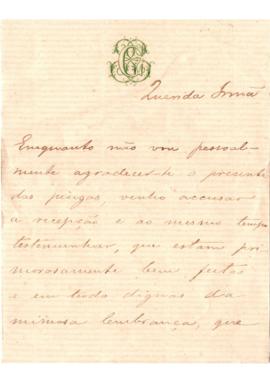 Querida Irmã
Emquanto não vou pessoal-
mente agradecer-te o presente
das pêigas, venho accusar
a recepção e ao mesmo tempo
testemunhar, que estam pri
morosamente bem feitas
e em tudo dignas da
mimosa lembrança, que